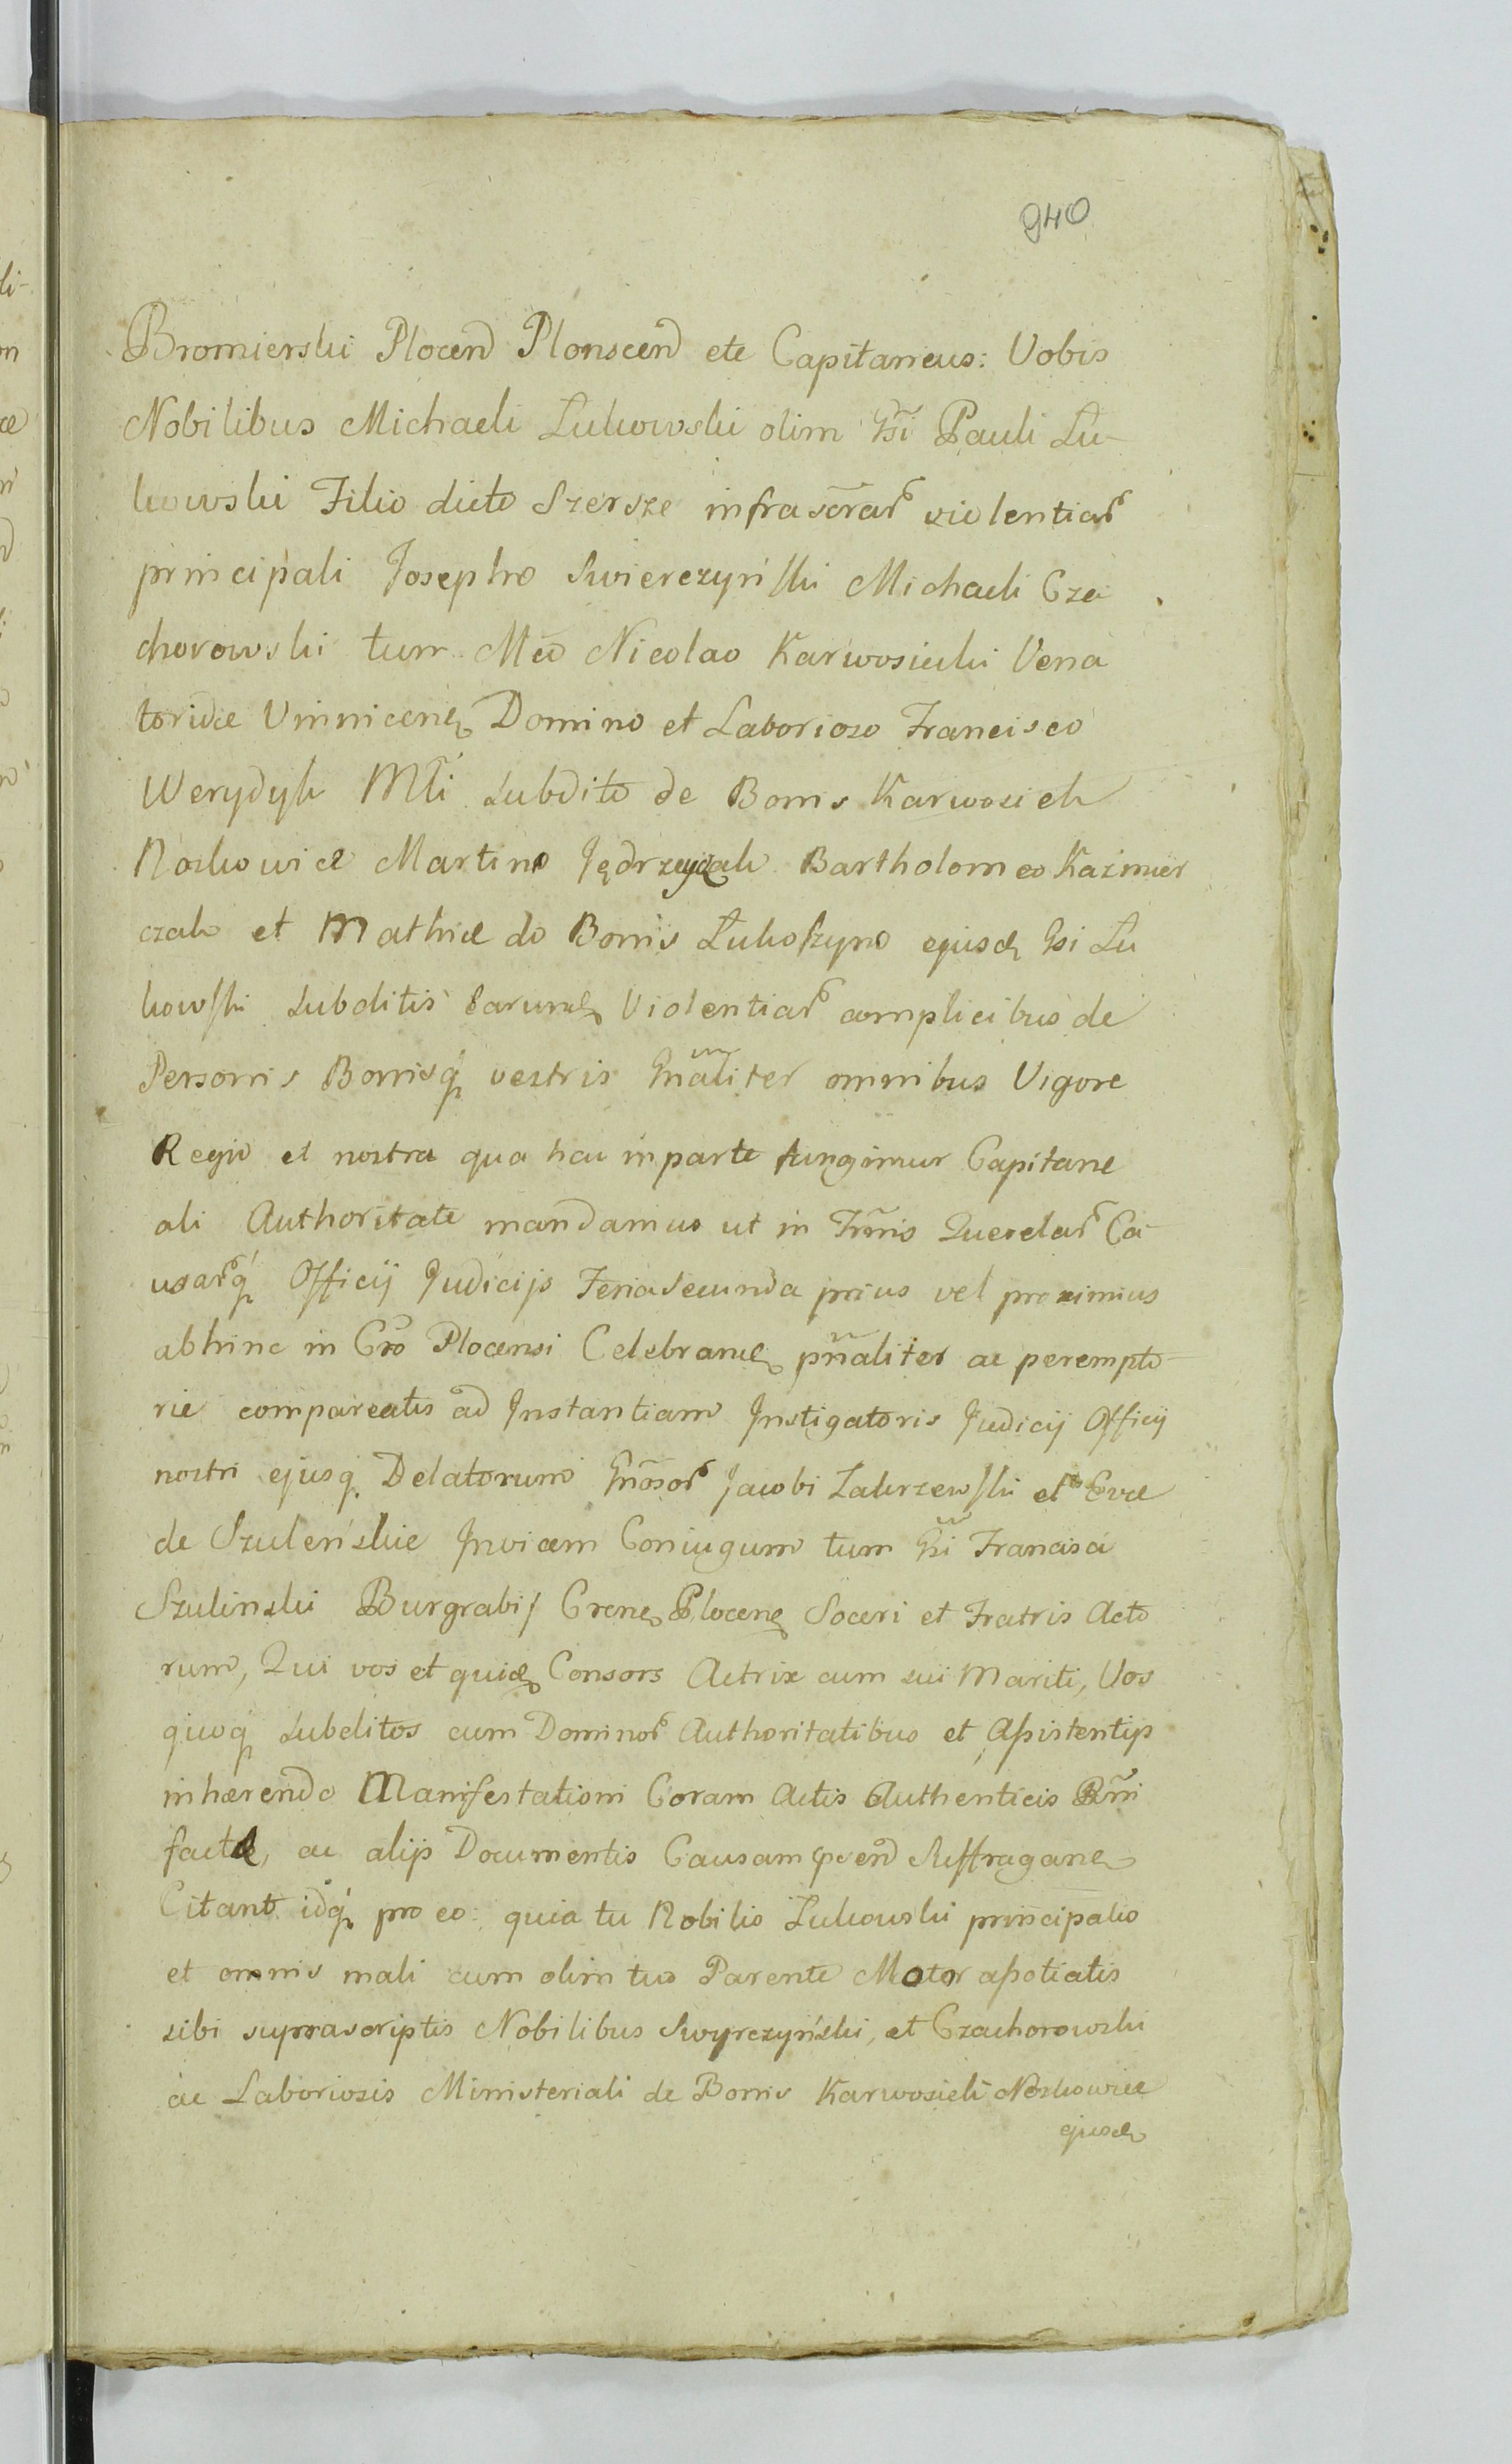 940
Bromierski Plocen Plonscen etc Capitaneus: Vobis
Nobilibus Michaeli Lukowski olim Gsi Pauli Lu-
kowski Filio dicto Szersze infrascrar violentiar
principali Josepho Swierczynski Michaeli Cza
chorowski tum Mco Nicolao Karwosiecki Vena
toridæ Vinnicen Domino et Laborioso Francisco
Werydyk Mli Subdito de Bonis Karwosiek
Noskowice Martino Jędrzeyczak Bartholomeo Kazimier
czak et Mathiæ de Bonis Lukoszyno ejusd Gsi Lu
kowski Subditis earumd Violentiar complicibus de
Personis Bonisq vestris Gnaliter omnibus Vigore
Regio et nostra qua hac in parte fungimur Capitane
ali Authoritate mandamus ut in Trmis Querelar Ca-
usarq Officij Judicijs Feria Secunda prius vel proximius
abhinc in Cro Plocensi Celebrand pnaliter ac perempto-
rie compareatis ad Instantiam Instigatoris Judicij Officij
nostri ejusq Delatorum Gnosor Jacobi Zakrzewski et Evæ
de Szulenskie Invicem Coniugum tum Gsi Francisci
Szulinski Burgrabij Crens Plocens Soceri et Fratris Acto
rum, Qui vos et quid Consors Actrix cum sui Mariti, Vos
quoq Subditos cum Dominor Authoritatibus et Assistentijs
inhærendo Manifestationi Coram Actis Authenticis Rmi
factæ, ac alijs Documentis Causam pcen Suffragan
Citant idq pro eo: quia tu Nobilis Lukowski principalis
et omnis mali cum olim tuo Parente Motor asotiatis
sibi suprascriptis Nobilibus Swyrczynski, et Czachorowski
ac Laboriosis Ministeriali de Bonis Karwosieki Noskowice
ejusd